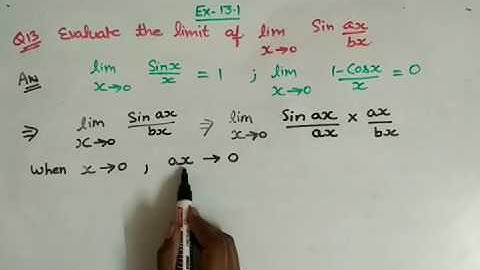 Ex-13.1
Q13 Evaluate the limit of lim x→0 Sin ax/bx
Ans lim x→0 Sinx/x = 1 ; lim x→0 1-Cosx/x = 0
⇒ lim x→0 Sin ax/bx ⇒ lim x→0 Sin ax/ax × ax/bx
When x→0 , ax → 0